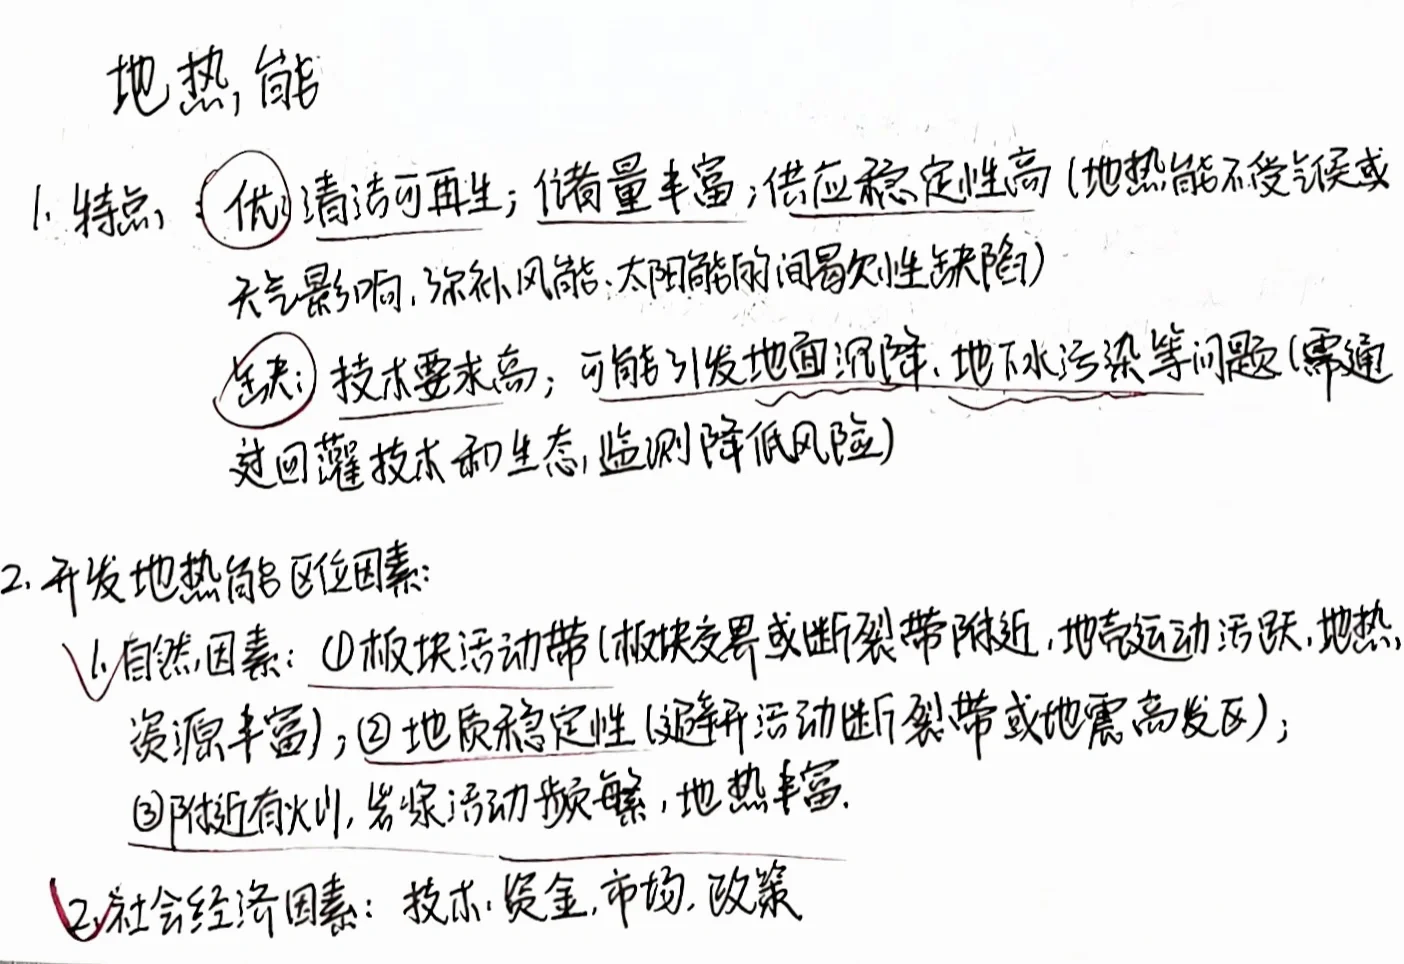 地热能
1. 特点: 优: 清洁可再生; 储量丰富; 供应稳定性高(地热能不受气候或
天气影响, 弥补风能、太阳能的间曷欠性缺陷)
缺: 技术要求高; 可能引发地面沉降、地下水污染等问题(需通
过回灌技术和生态监测降低风险)
2. 开发地热能区位因素:
1. 自然因素: ①板块活动带(板块交界或断裂带附近, 地壳运动活跃, 地热
资源丰富); ②地质稳定性(避开活动断裂带或地震高发区);
③附近有火山, 岩浆活动频繁, 地热丰富.
2. 社会经济因素: 技术、资金、市场、政策